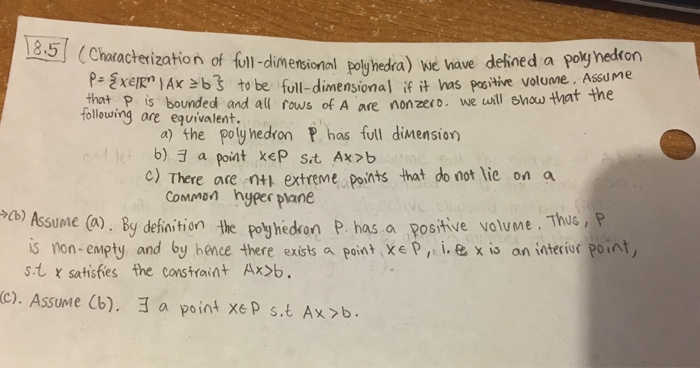 8.5 (Characterization of full-dimensional polyhedra) we have defined a polyhedron
P = {x∈ℝⁿ | Ax ≥ b} to be full-dimensional if it has positive volume. Assume
that P is bounded and all rows of A are nonzero. we will show that the
following are equivalent.
a) the polyhedron P has full dimension
b) ∃ a point x∈P s.t Ax>b
c) There are n+1 extreme points that do not lie on a
common hyperplane
→(b) Assume (a). By definition the polyhedron P has a positive volume. Thus, P
is non-empty and by hence there exists a point x∈P, i.e x is an interior point,
s.t x satisfies the constraint Ax>b.
(c). Assume (b). ∃ a point x∈P s.t Ax>b.